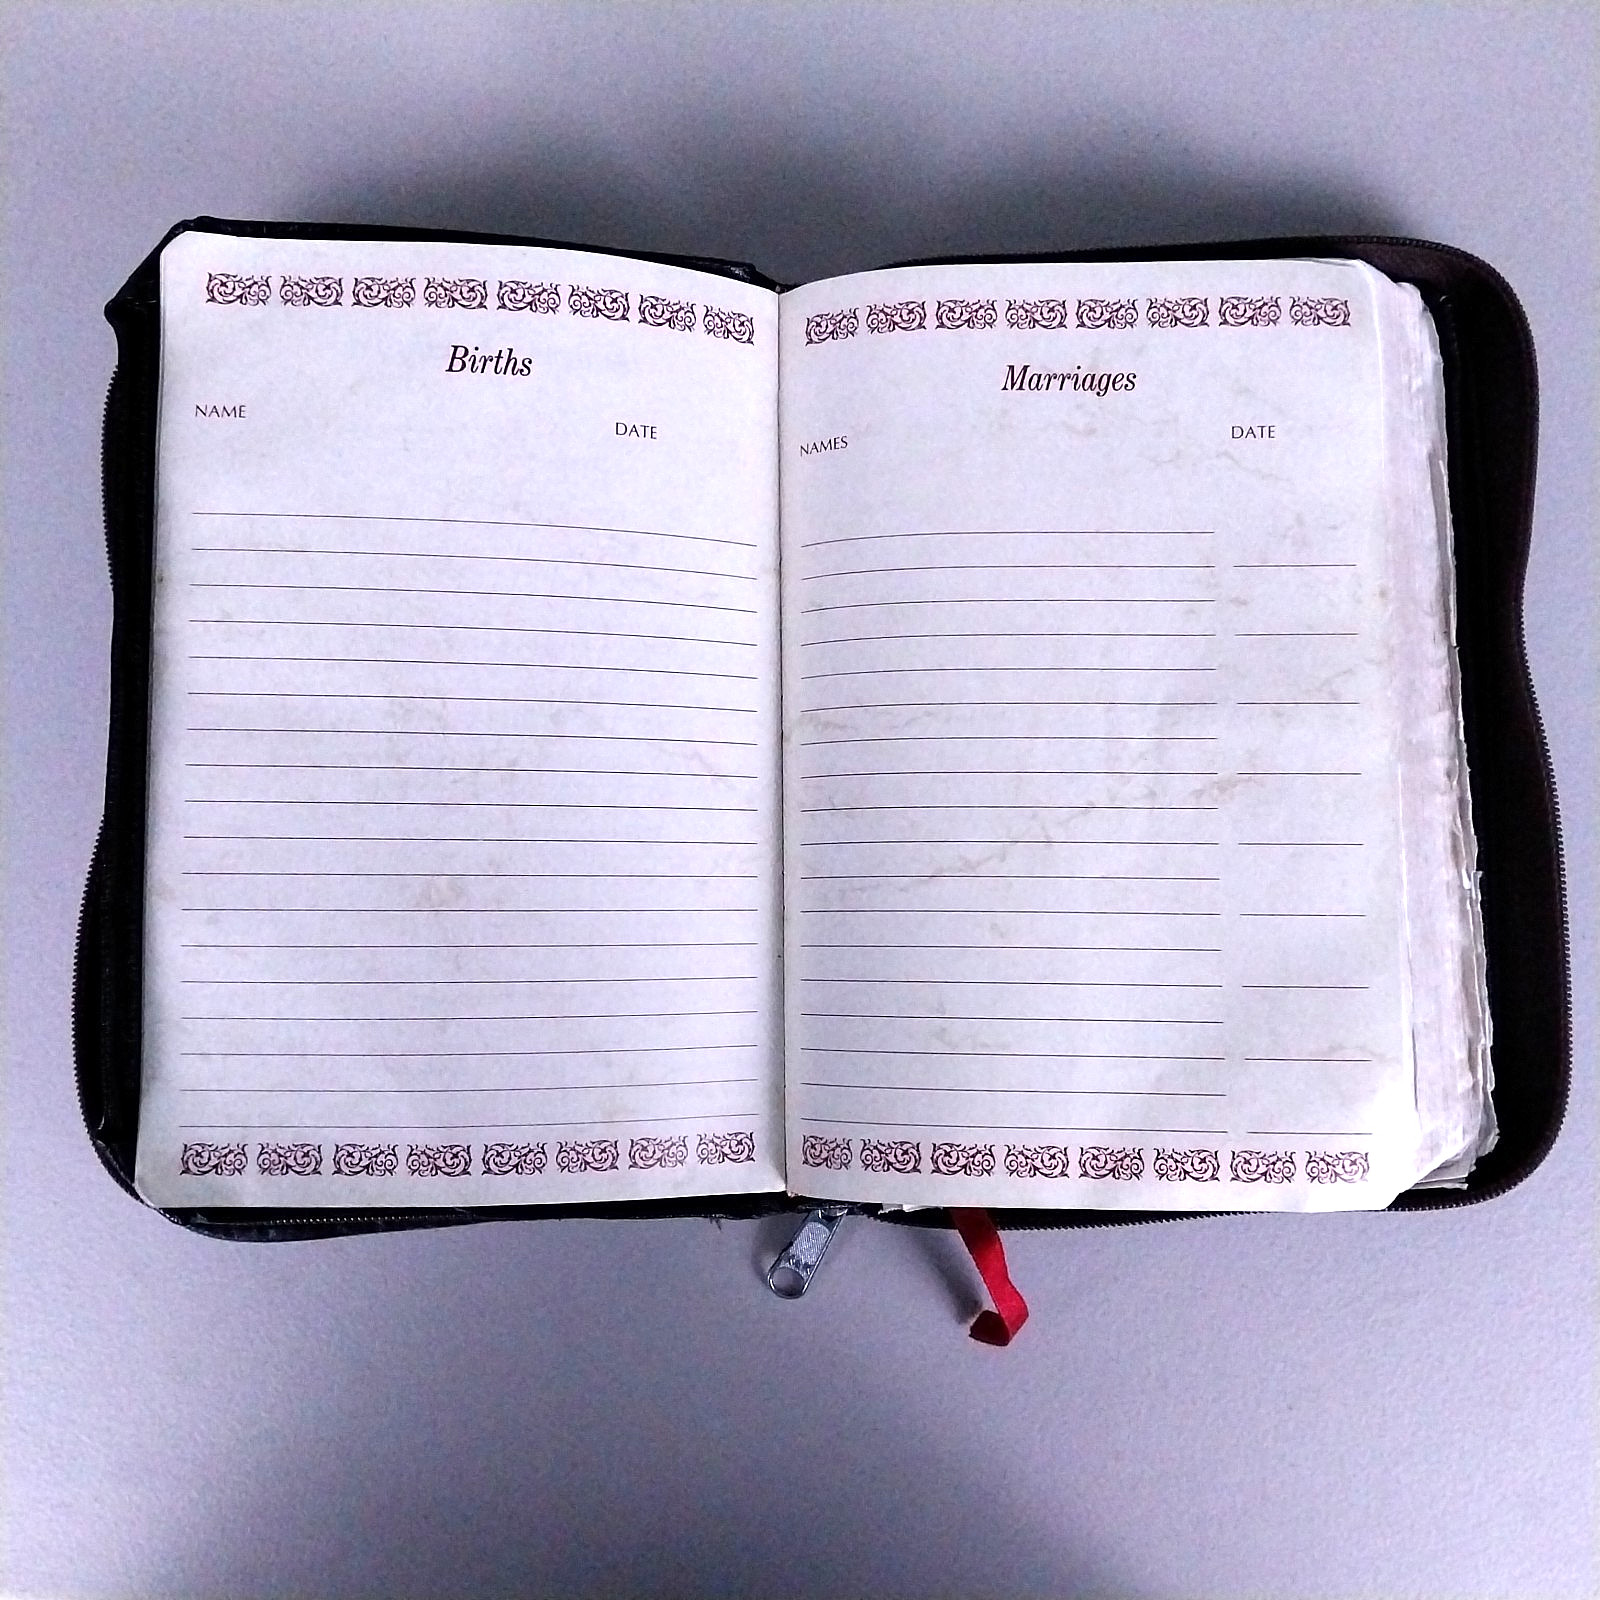 Births
NAME
DATE
Marriages
NAMES
DATE